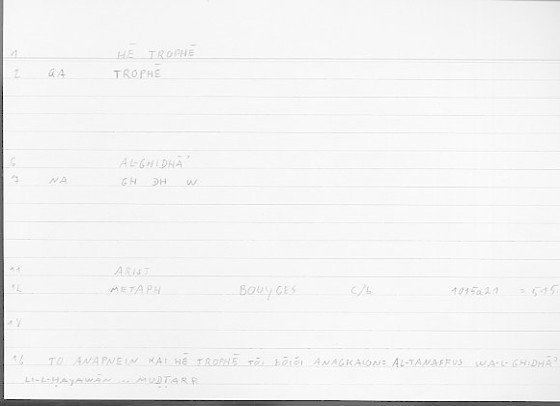 1 HĒ TROPHĒ
2 GA TROPHĒ
6 AL-GHIDHĀʾ
7 NA GH DH W
11 ARIST
12 METAPH BOUYGES C/6 1015a21 = 515.
14
16 TO ANAPNEIN KAI HĒ TROPHĒ TŌI ZŌIŌI ANAGKAION: AL-TANAFFUS WA-L-GHIDHĀʾ
LI-L-ḤAYAWĀN .. MUḌṬARR